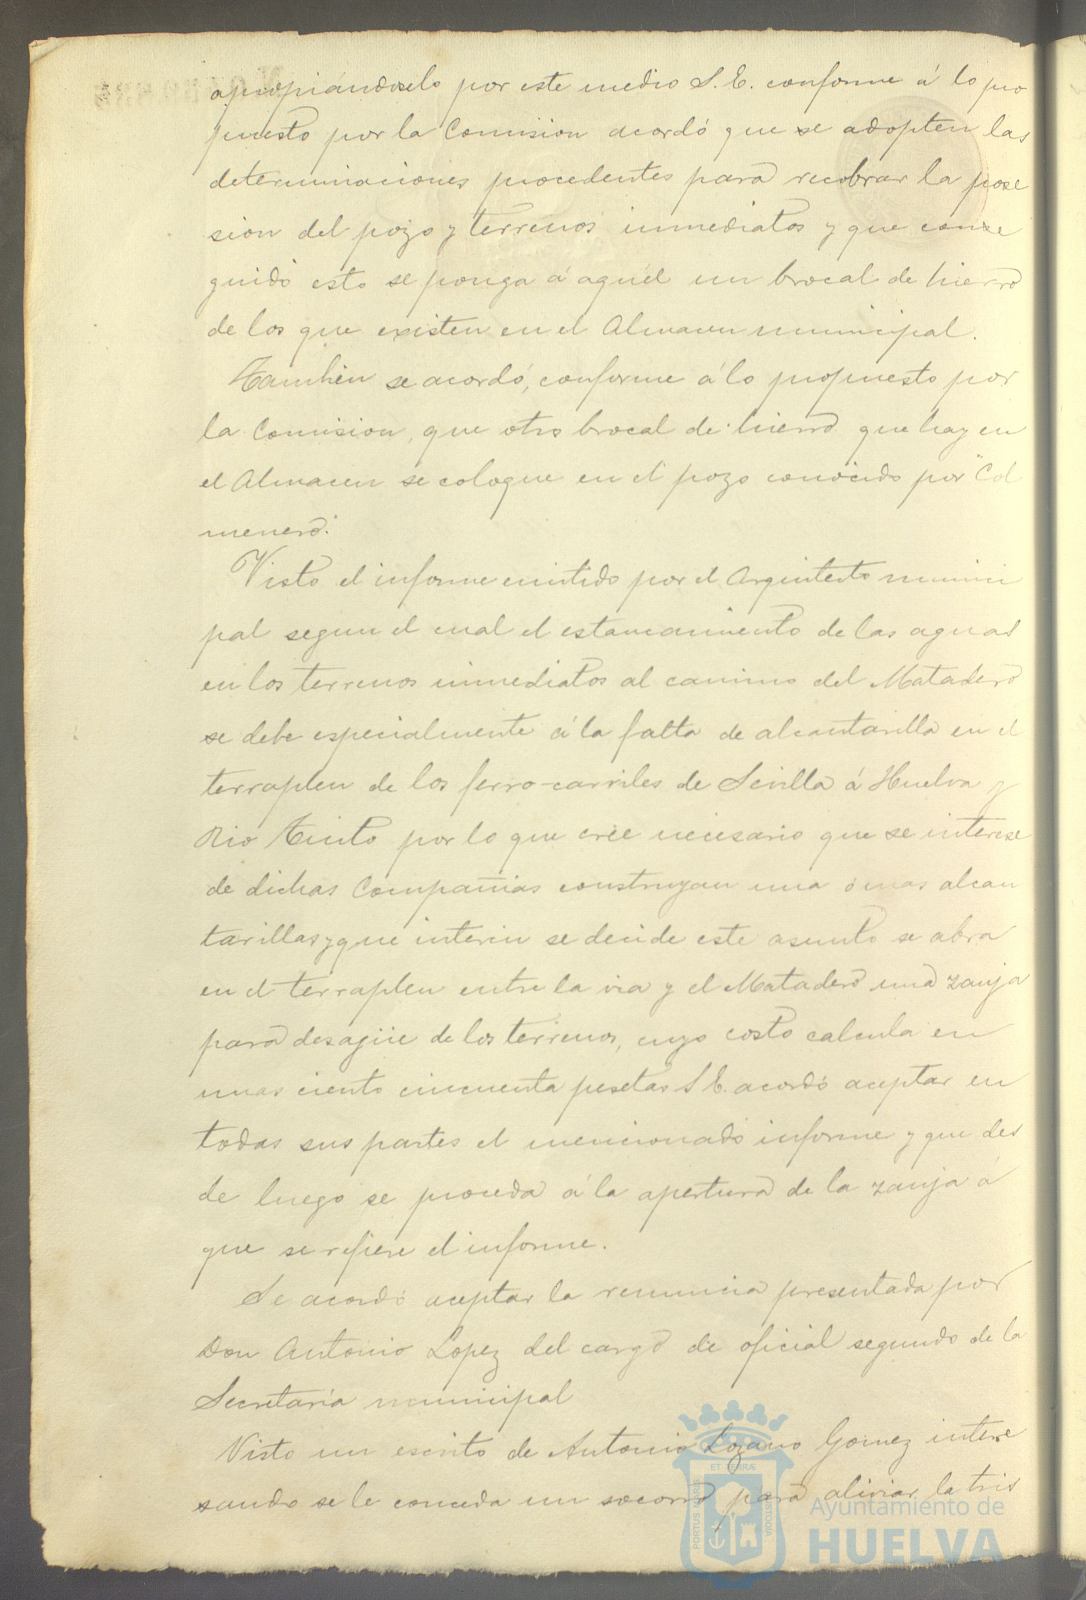 apropiándoselo por este medio S. E. conforme á lo pro
puesto por la Comision acordó que se adopten las
determinaciones procedentes para recobrar la pose
sion del pozo y terrenos inmediatos y que conse
guido esto se ponga á aquél un brocal de hierro
de los que existen en el Almacen municipal.
Tambien se acordó, conforme á lo propuesto por
la Comision, que otro brocal de hierro que hay en
el Almacen se coloque en el pozo conocido por "Col
menero."
Visto el informe emitido por el Arquitecto munici
pal segun el cual el estancamiento de las aguas
en los terrenos inmediatos al camino del Matadero
se debe especialmente á la falta de alcantarilla en el
terraplen de los ferro-carriles de Sevilla á Huelva y
Rio Tinto por lo que cree necesario que se interese
de dichas Compañias construyan una ó mas alcan
tarillas y que interin se decide este asunto se abra
en el terraplen entre la via y el Matadero una zanja
para desagüe de los terrenos, cuyo costo calcula en
unas ciento cincuenta pesetas S. E. acordó aceptar en
todas sus partes el mencionado informe y que des
de luego se proceda á la apertura de la zanja á
que se refiere el informe.
Se acordó aceptar la renuncia presentada por
Don Antonio Lopez del cargo de oficial segundo de la
Secretaría municipal
Visto un escrito de Antonio Lozano Gomez intere
sando se le conceda un socorro para aliviar la tris
PORTUS MARIS
ET TERRÆ
CUSTODIA
Ayuntamiento de
HUELVA